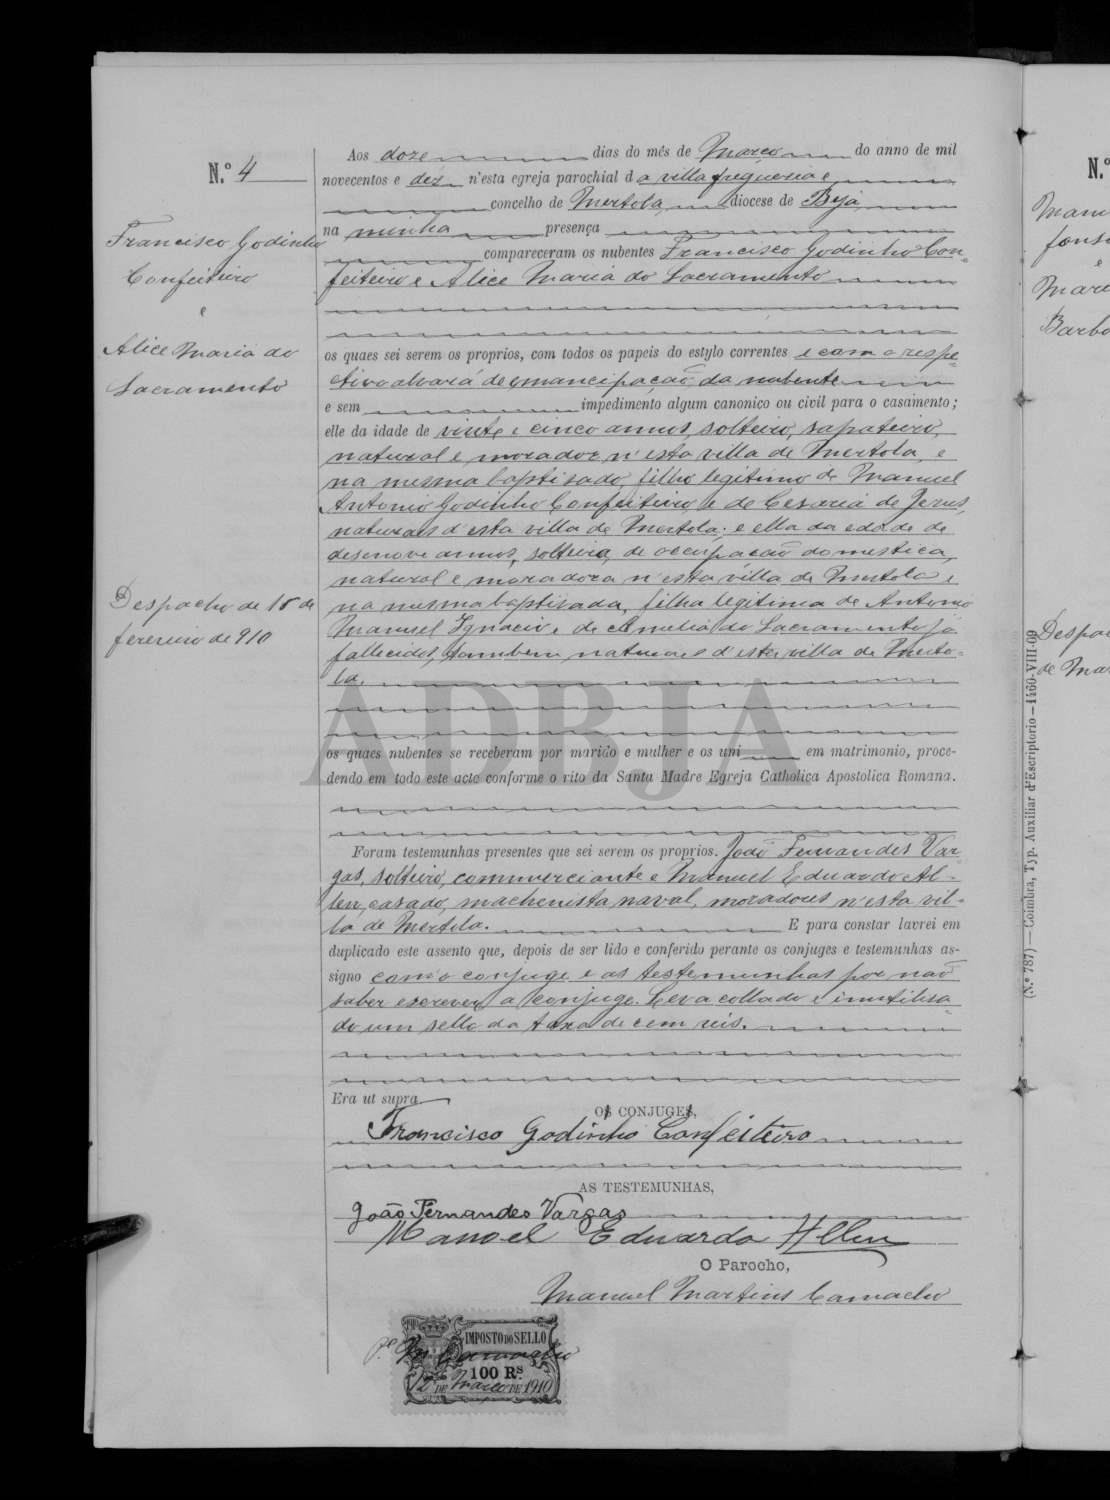 N.º 4
Francisco Godinho
Confeiteiro
e
Alice Maria do
Sacramento
Despacho de 15 de
fevereiro de 910
Aos doze dias do mês de Março do anno de mil
novecentos e dez n'esta egreja parochial da villa freguesia e
concelho de Mertola, diocese de Beja
na minha presença
compareceram os nubentes Francisco Godinho Con-
feiteiro e Alice Maria do Sacramento
os quaes sei serem os proprios, com todos os papeis do estylo correntes e com o respe-
ctivo alvará de emancipação da nubente
e sem impedimento algum canonico ou civil para o casamento;
elle da idade de vinte e cinco annos, solteiro, sapateiro,
natural e morador n'esta villa de Mertola, e
na mesma baptisado, filho legitimo de Manuel
Antonio Godinho Confeiteiro e de Cesaria de Jesus,
naturaes d'esta villa de Mertola; e ella da edade de
desenove annos, solteira, de occupação domestica,
natural e moradora n'esta villa de Mertola e
na mesma baptisada, filha legitima de Antonio
Manuel Ignacio e de Amelia do Sacramento já
fallecidos, tambem naturaes d'esta villa de Merto-
la.
ADBJA
os quaes nubentes se receberam por marido e mulher e os uni em matrimonio, proce-
dendo em todo este acto conforme o rito da Santa Madre Egreja Catholica Apostolica Romana.
Foram testemunhas presentes que sei serem os proprios. João Fernandes Var-
gas, solteiro, commerciante e Manuel Eduardo Al-
len, casado, machenista naval, moradores n'esta vil-
la de Mertola. E para constar lavrei em
duplicado este assento que, depois de ser lido e conferido perante os conjuges e testemunhas as-
signo com o conjuge e as testemunhas por não
saber escrever a conjuge. Leva collado e inutilisa-
do um sello da taxa de cem reis.
Era ut supra
OS CONJUGES,
Francisco Godinho Confeiteiro
AS TESTEMUNHAS,
João Fernandes Vargas
Manoel Eduardo Allen
O Parocho,
Manuel Martins Camacho
P.e M. Camacho
IMPOSTO DO SELLO
100 Rs.
12 DE Março DE 1910
(N.º 787) — Coimbra, Typ. Auxiliar d'Escriptorio — 1460-VIII-09
N.º
e
Barbo
Despac
de Mar